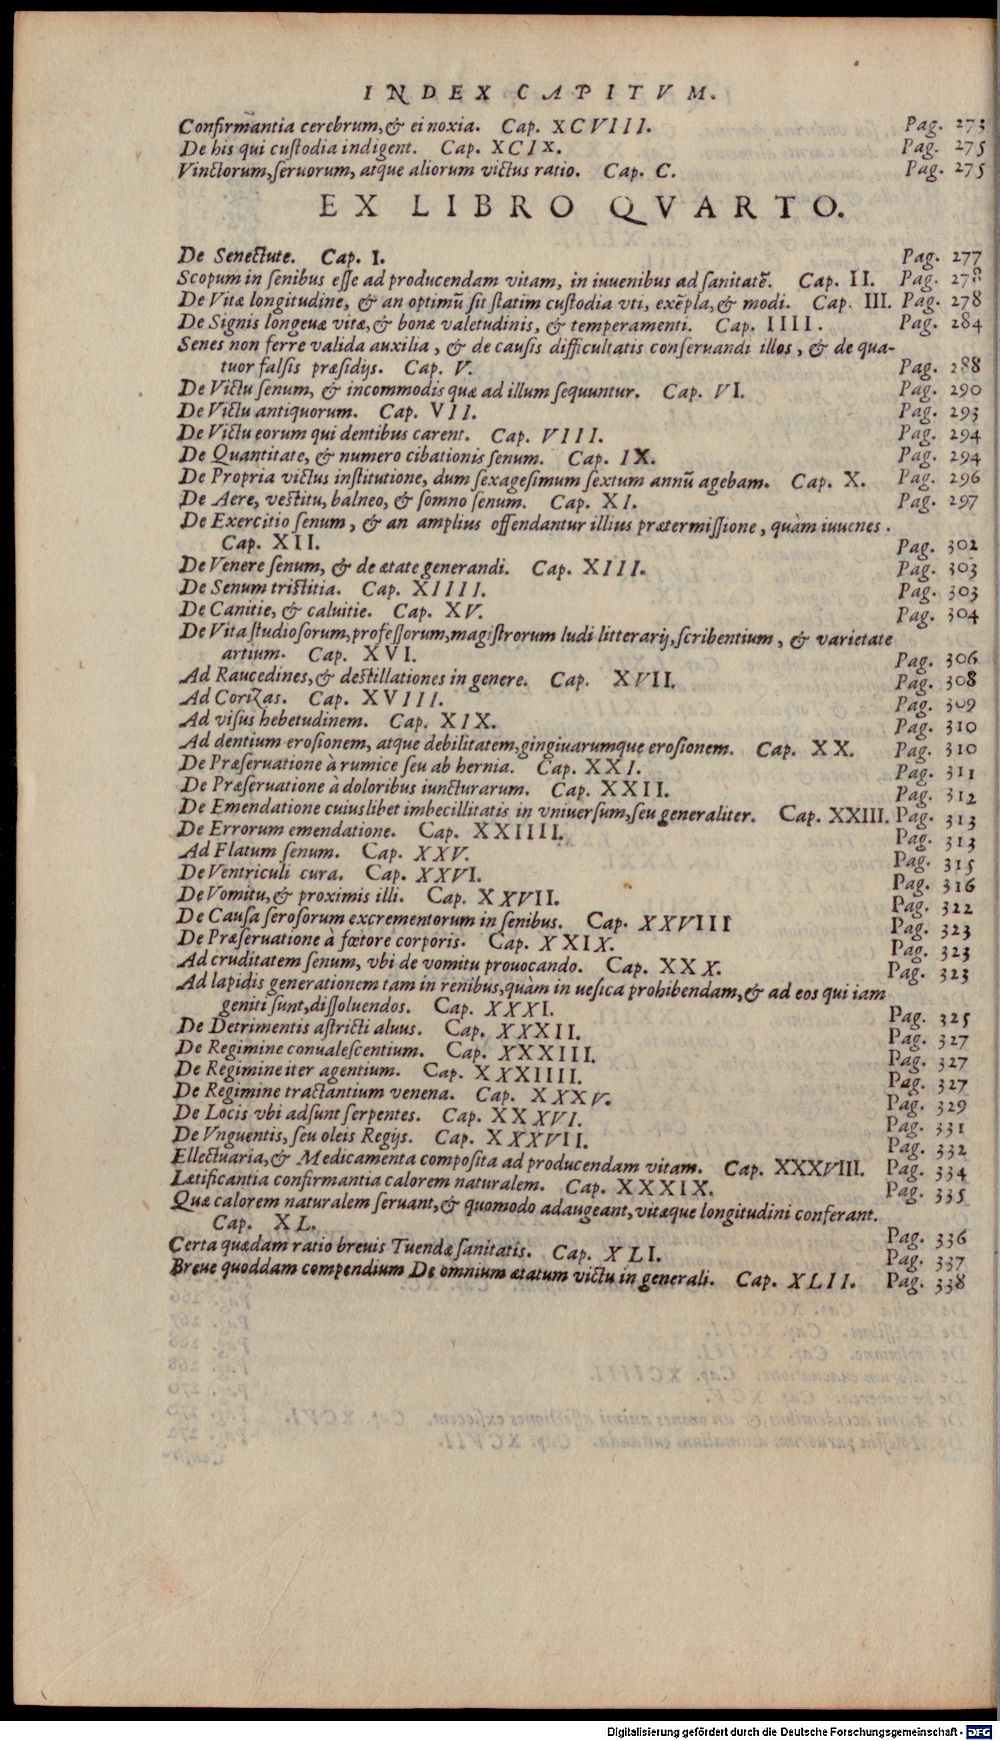 INDEX CAPITVM.
Confirmantia cerebrum,& ei noxia. Cap. XCVIII. Pag. 273
De his qui cuſtodia indigent. Cap. XCIX. Pag. 275
Vinctorum,ſeruorum, atque aliorum victus ratio. Cap. C. Pag. 275
EX LIBRO QVARTO.
De Senectute. Cap. I. Pag. 277
Scopum in ſenibus eſſe ad producendam vitam, in iuuenibus ad ſanitatẽ. Cap. II. Pag. 278
De Vitæ longitudine, & an optimũ ſit ſtatim cuſtodia vti, exẽpla,& modi. Cap. III. Pag. 278
De Signis longeuæ vitæ,& bonæ valetudinis, & temperamenti. Cap. IIII. Pag. 284
Senes non ferre valida auxilia, & de cauſis difficultatis conſeruandi illos, & de qua-
tuor falſis præſidijs. Cap. V. Pag. 288
De Victu ſenum, & incommodis quæ ad illum ſequuntur. Cap. VI. Pag. 290
De Victu antiquorum. Cap. VII. Pag. 293
De Victu eorum qui dentibus carent. Cap. VIII. Pag. 294
De Quantitate, & numero cibationis ſenum. Cap. IX. Pag. 294
De Propria victus inſtitutione, dum ſexageſimum ſextum annũ agebam. Cap. X. Pag. 296
De Aere, veſtitu, balneo, & ſomno ſenum. Cap. XI. Pag. 297
De Exercitio ſenum, & an amplius offendantur illius prætermiſſione, quàm iuuenes.
Cap. XII. Pag. 302
De Venere ſenum, & de ætate generandi. Cap. XIII. Pag. 303
De Senum triſtitia. Cap. XIIII. Pag. 303
De Canitie, & caluitie. Cap. XV. Pag. 304
De Vita ſtudioſorum,profeſſorum,magiſtrorum ludi litterarij,ſcribentium, & varietate
artium. Cap. XVI. Pag. 306
Ad Raucedines,& deſtillationes in genere. Cap. XVII. Pag. 308
Ad Corizas. Cap. XVIII. Pag. 309
Ad viſus hebetudinem. Cap. XIX. Pag. 310
Ad dentium eroſionem, atque debilitatem,gingiuarumque eroſionem. Cap. XX. Pag. 310
De Præſeruatione à rumice ſeu ab hernia. Cap. XXI. Pag. 311
De Præſeruatione à doloribus iuncturarum. Cap. XXII. Pag. 312
De Emendatione cuiuslibet imbecillitatis in vniuerſum,ſeu generaliter. Cap. XXIII. Pag. 313
De Errorum emendatione. Cap. XXIIII. Pag. 313
Ad Flatum ſenum. Cap. XXV. Pag. 315
De Ventriculi cura. Cap. XXVI. Pag. 316
De Vomitu,& proximis illi. Cap. XXVII. Pag. 322
De Cauſa ſeroſorum excrementorum in ſenibus. Cap. XXVIII Pag. 323
De Præſeruatione à fœtore corporis. Cap. XXIX. Pag. 323
Ad cruditatem ſenum, vbi de vomitu prouocando. Cap. XXX. Pag. 323
Ad lapidis generationem tam in renibus,quàm in ueſica prohibendam,& ad eos qui iam
geniti ſunt,diſſoluendos. Cap. XXXI. Pag. 325
De Detrimentis aſtricti aluus. Cap. XXXII. Pag. 327
De Regimine conualeſcentium. Cap. XXXIII. Pag. 327
De Regimine iter agentium. Cap. XXXIIII. Pag. 327
De Regimine tractantium venena. Cap. XXXV. Pag. 329
De Locis vbi adſunt ſerpentes. Cap. XXXVI. Pag. 331
De Vnguentis, ſeu oleis Regijs. Cap. XXXVII. Pag. 332
Ellectuaria,& Medicamenta compoſita ad producendam vitam. Cap. XXXVIII. Pag. 334
Lætificantia confirmantia calorem naturalem. Cap. XXXIX. Pag. 335
Quæ calorem naturalem ſeruant,& quomodo adaugeant,vitæque longitudini conferant.
Cap. XL. Pag. 336
Certa quædam ratio breuis Tuendæ ſanitatis. Cap. XLI. Pag. 337
Breue quoddam compendium De omnium ætatum victu in generali. Cap. XLII. Pag. 338
Digitalisierung gefördert durch die Deutsche Forschungsgemeinschaft - DFG